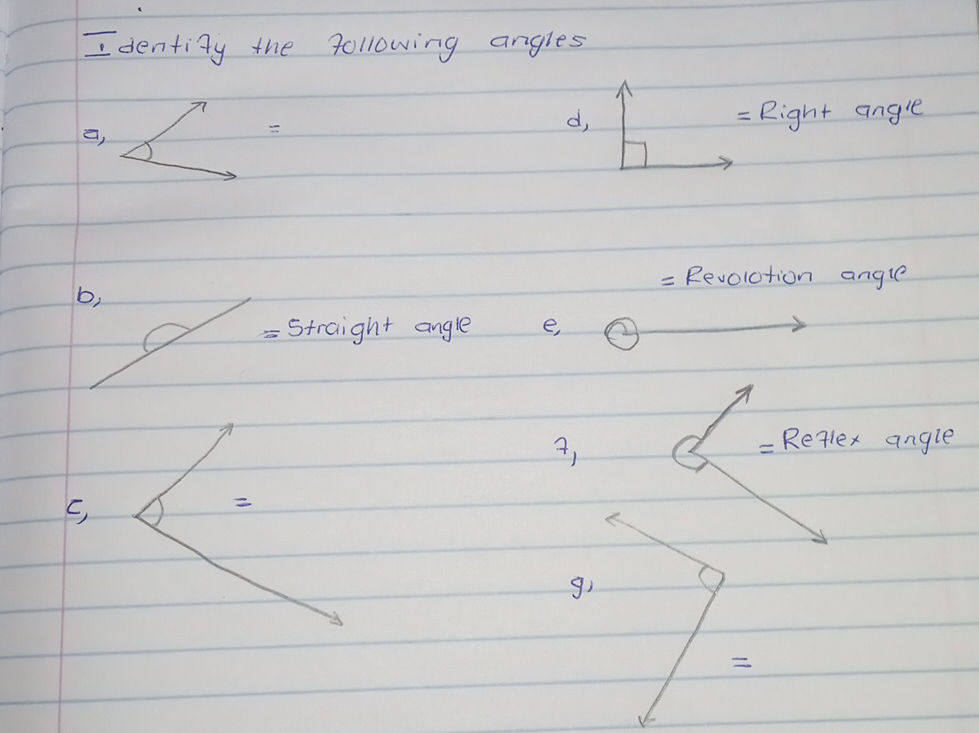 Identify the following angles
a, =
d, = Right angle
b, = Straight angle
e, = Revolotion angle
c, =
f, = Reflex angle
g, =